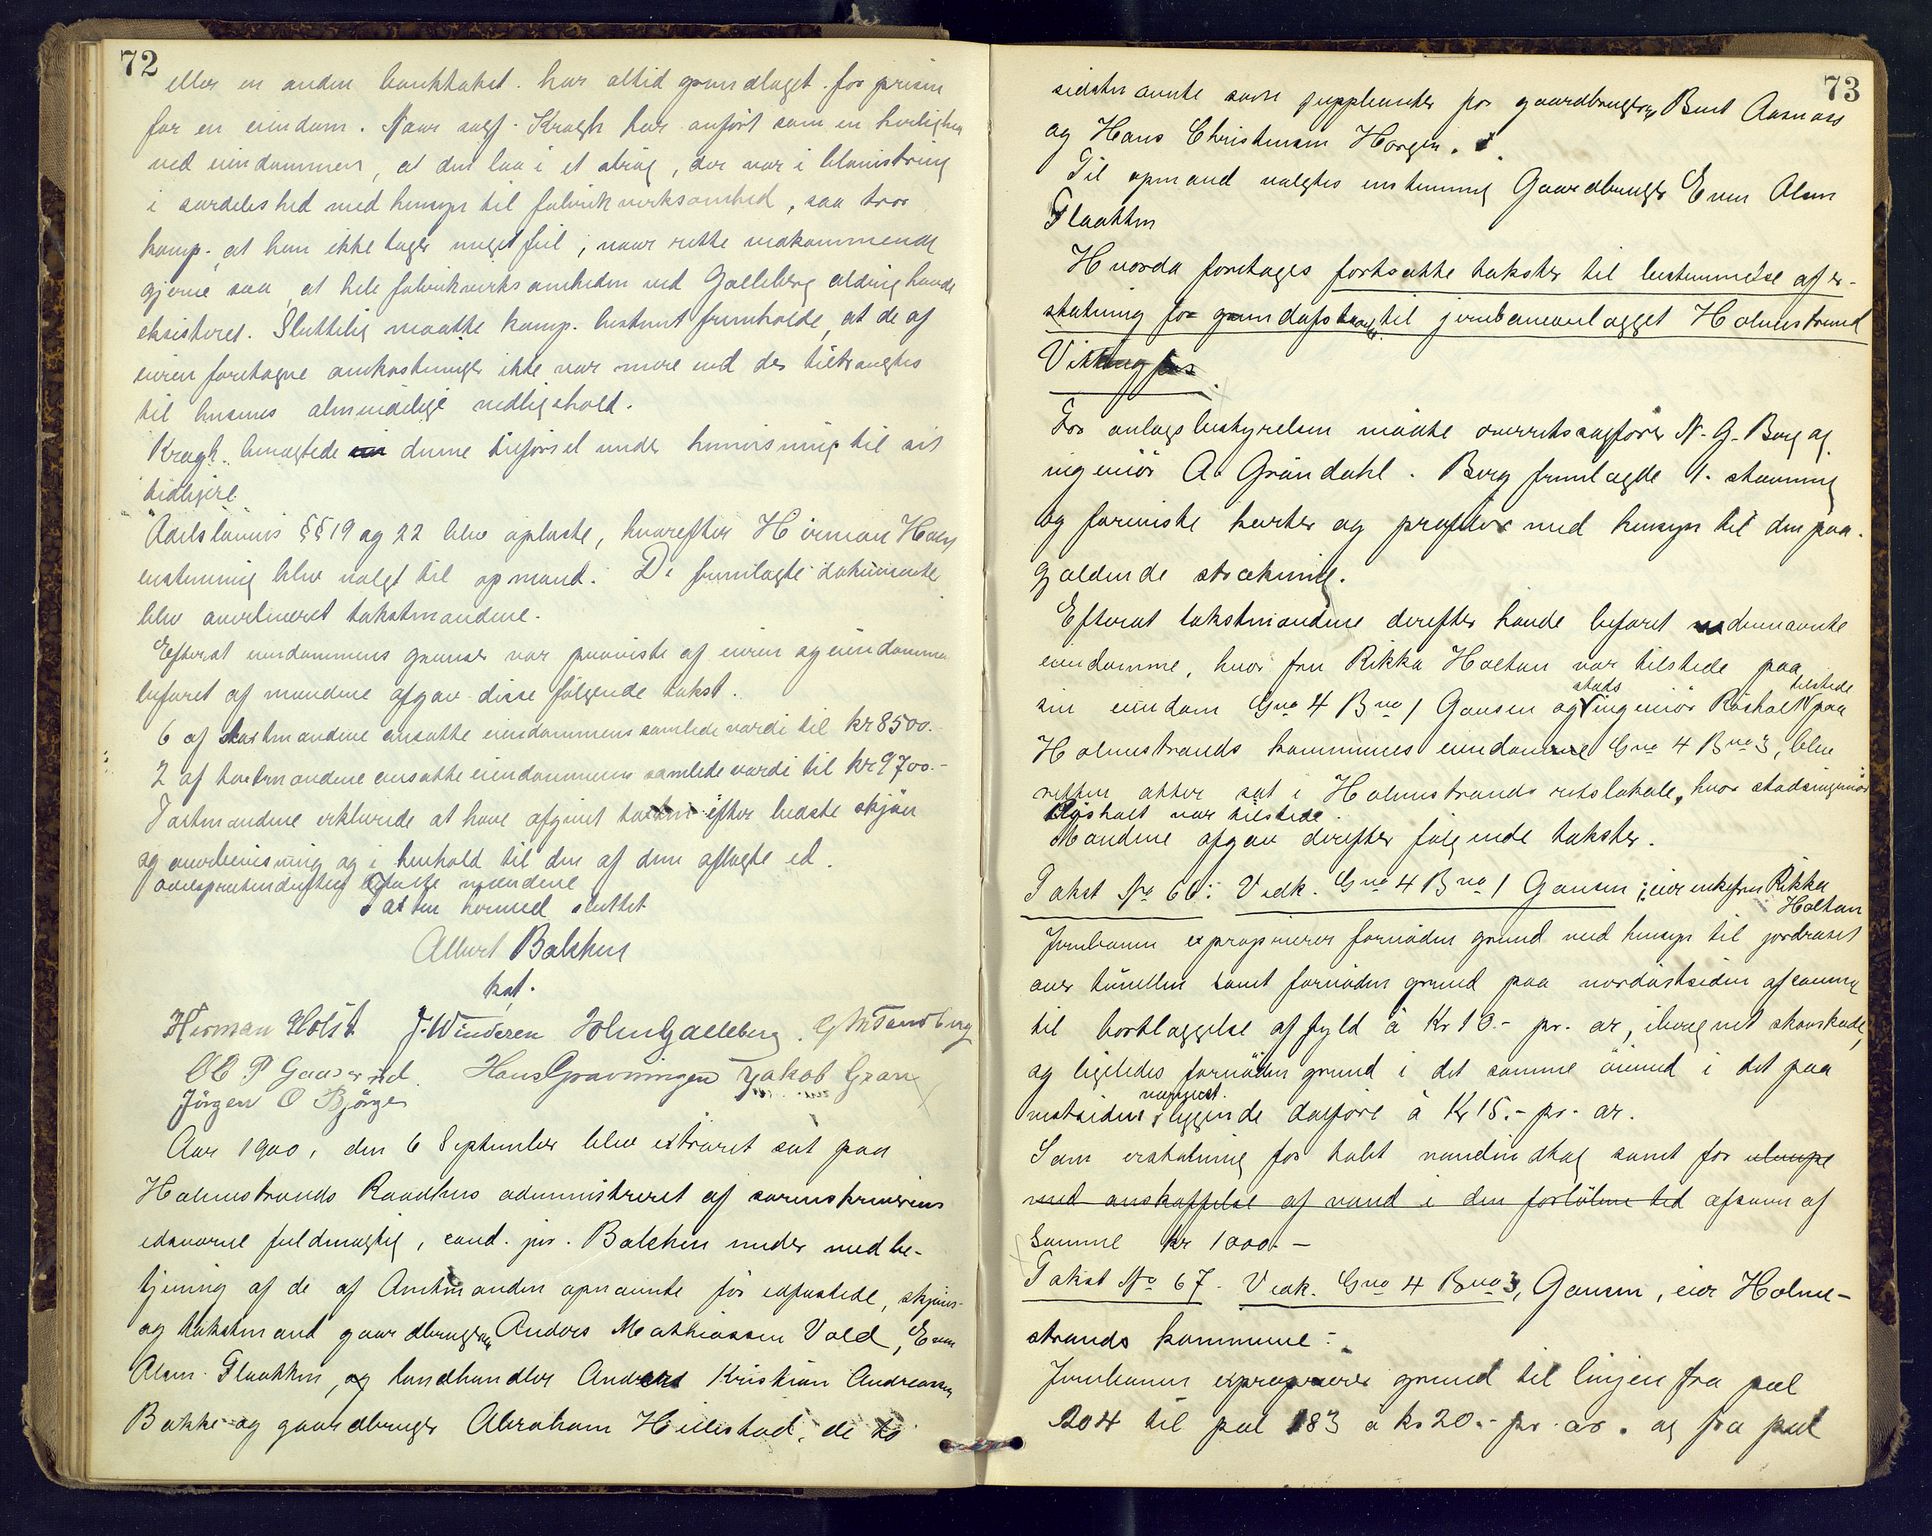 72
eller en anden banktakst har altid grundlaget for prisen
for en eiendom. Naar sagf. Kragh har anført som en herlighed
ved eiendommen, at den laa i et strøg, der var i blomstring
i særdeleshed med hensyn til fabrikvirksomhed, saa tror
komp. at han ikke tager meget feil, naar rette vedkommende
gjerne saa, at hele fabrikvirksomheden ved Galleberg aldrig havde
eksisteret. Sluttelig maatte komp. bestemt fremholde, at de af
eieren foretagne omkostninger ikke var mere end der tiltrængtes
til husenes almindelige vedligehold.
Kragh benegtede denne tilførsel under henvisning til sit
tidligere
Adelslovens §§ 19 og 22 blev oplæste, hvorefter Herman Holst
enstemmig blev valgt til opmand. De fremlagte dokumenter
blev overleveret takstmændene.
Efterat eiendommens grænser var paaviste af eieren og eiendommen
befaret af mændene afgav disse følgende takst.
6 af takstmændene ansatte eiendommens samlede værdi til kr 8500.-
2 af takstmændene ansatte eiendommens samlede værdi til kr 9700.-
Takstmændene erklærede at have afgivet taksten efter bedste skjøn
og overbevisning og i henhold til den af dem aflagte ed.
Taksten hermed sluttet
Albert Balchen
kst.
Herman Holst J. Winderen Holm Galleberg. G M Tandberg
Ole P Gaaserud. Hans Gravningen Jakob Gran
Jörgen O Bjørge
Aar 1900, den 6 September blev extraret sat paa
Holmestrands Raadhus administreret af sorenskriverens
edsvorne fuldmægtig, cand. jur. Balchen under medbe-
tjening af de af Amtmanden opnævnte før edfæstede, skjøns-
og takstmænd gaardbrugerne Anders Mathiassen Vold, Even
Olsen Flaatten, og landhandler Anders Kristian Andreassen
Bakke og gaardbruger Abraham Hillestad, de to
73
sidstnævnte som suppleanter for gaardbrugerne Bent Aasnass
og Hans Christensen Horgen.
Til opmand valgtes enstemmig Gaardbruger Even Olsen
Flaatten
Hvorda foretages fortsatte takster til bestemmelse af er-
statning for grundafstaaelse til jernbaneanlægget Holmestrand
Vittingfos
For anlægsbestyrelsen mødte overretssagfører N. G. Berg og
ingeniør A. Gröndahl. Berg fremlagde 1. stævning
og foreviste karter og profiler med hensyn til den paa-
gjældende strækning.
Efterat takstmændene derefter havde befaret nedennævnte
eiendomme, hvor fru Rikka Holtan var tilstede paa
sin eiendom Gno 4 Bno 1 Gausen og stadsingeniør Røsholt tilstede paa
Holmestrands kommunes eiendom Gno 4 Bno 3, blev
retten atter sat i Holmestrands retslokale, hvor stadsingeniør
Røsholt var tilstede.
Mændene afgav derefter følgende takster.
Takst No 66: Vedk. Gno 4 Bno 1 Gausen; eier enkefru Rikka
Holtan
Jernbanen exproprierer fornøden grund med hensyn til jordraset
over tunellen samt fornøden grund paa nordøstsiden af samme
til bortlæggelse af fyld à Kr 10.- pr. ar, iberegnet skovskade,
og ligeledes fornøden grund i det samme øiemed i det paa
vestsiden nærmest liggende dalføre à Kr 15.- pr. ar.
Som erstatning for tabt vandindtag samt for ulempe
med anskaffelse af vand i den forløbne tid afsavn af
samme kr 1000.-
Takst No 67. Vedk. Gno 4 Bno 3, Gausen, eier Holme-
strands kommune:
Jernbanen exproprierer grund til linjen fra pæl
204 til pæl 183 à kr 20.- pr. ar. og fra pæl